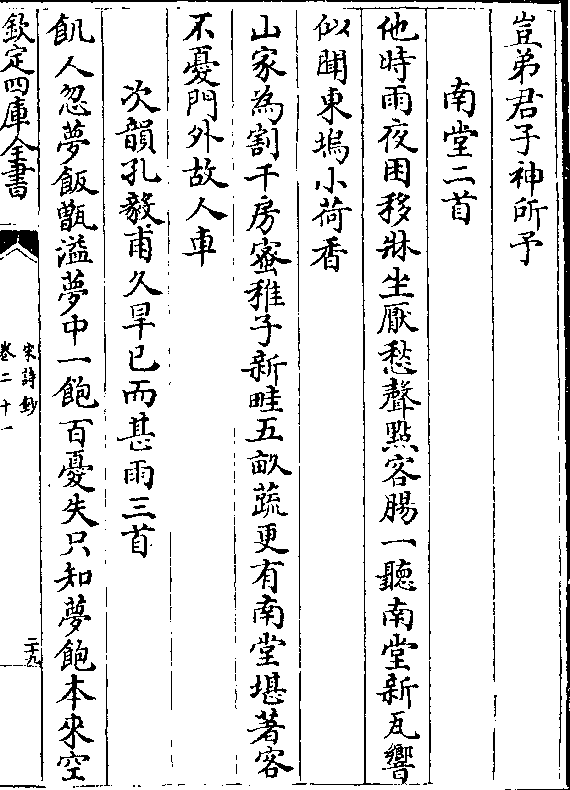 豈弟君子神所予
南堂二首
他時雨夜困移牀坐厭愁聲點客腸一聽南堂新瓦響
似聞東塢小荷香
山家為割千房蜜稚子新畦五畝蔬更有南堂堪著客
不憂門外故人車
次韻孔毅甫久旱已而甚雨三首
飢人忽夢飯甑溢夢中一飽百憂失只知夢飽本來空
欽定四庫全書
宋詩鈔
卷二十一
二十九